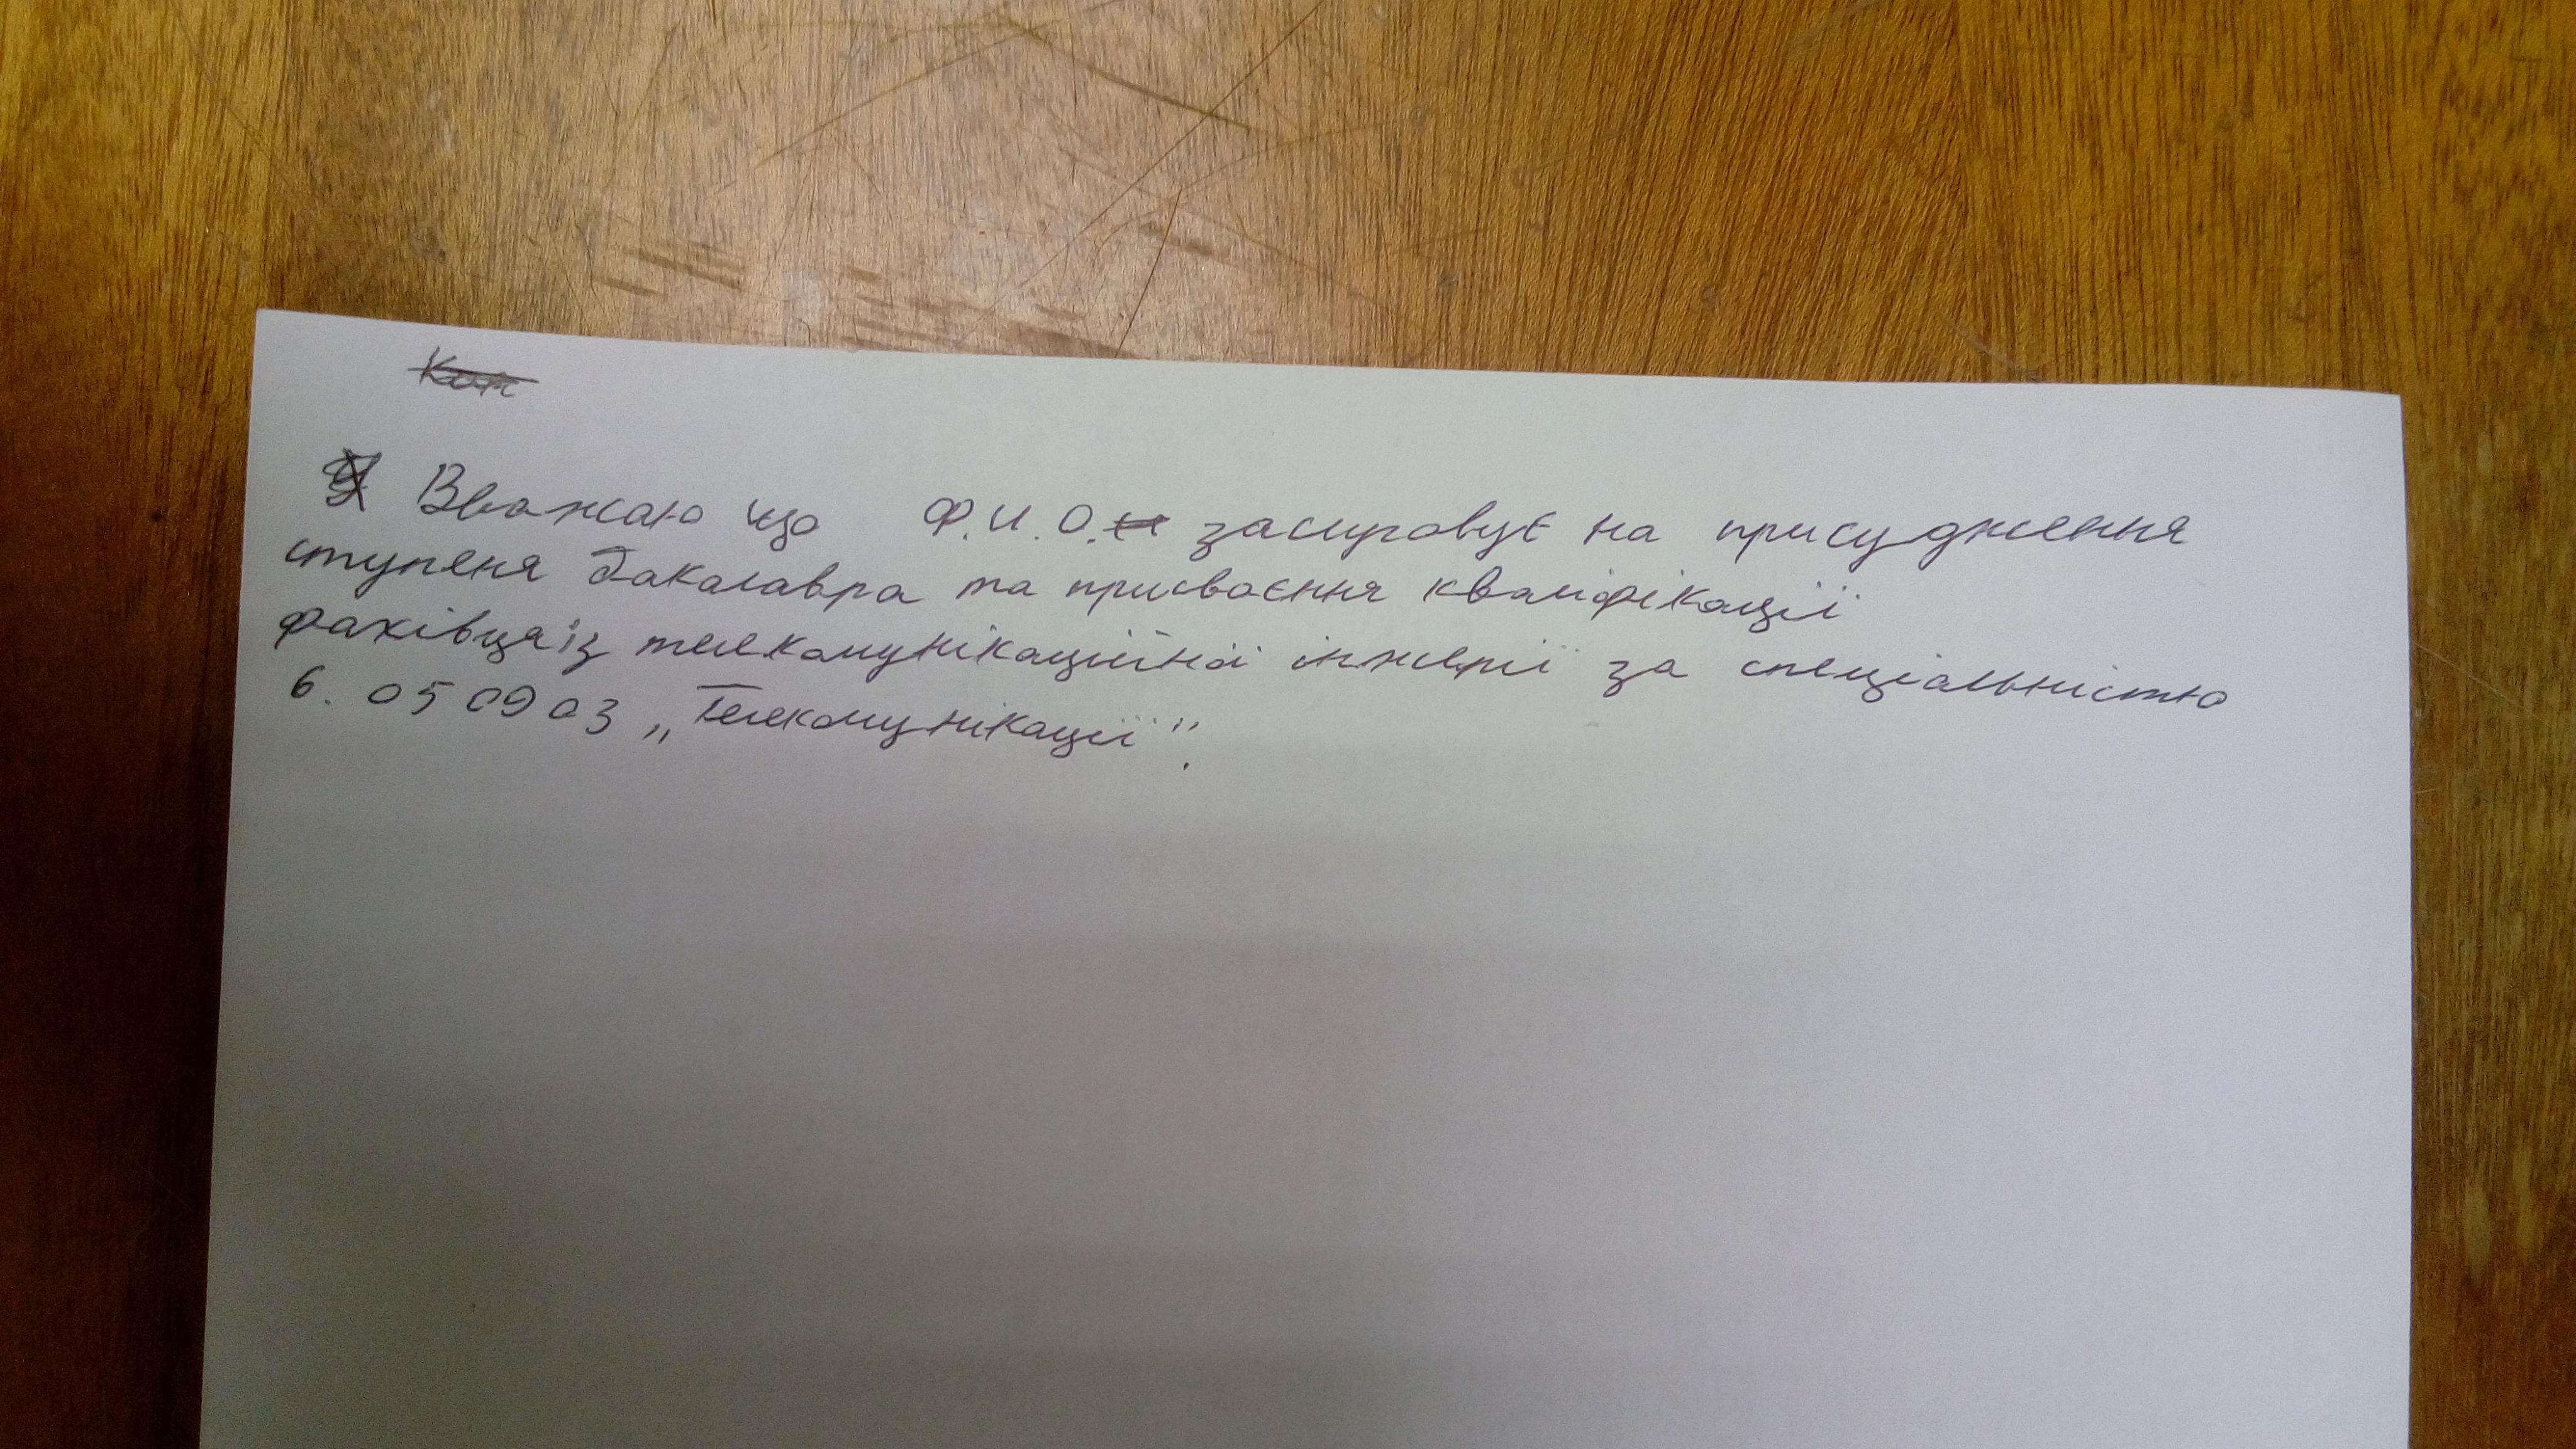 Вважаю що Ф.И.О. заслуговує на присудження
ступеня бакалавра та присвоєння кваліфікації
фахівця із телекомунікаційної інжерії за спеціальністю
6. 050903 „Телекомунікації".